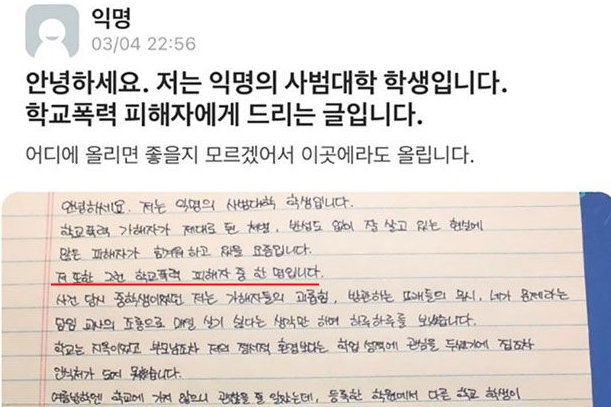 익명
03/04 22:56
안녕하세요. 저는 익명의 사범대학 학생입니다.
학교폭력 피해자에게 드리는 글입니다.
어디에 올리면 좋을지 모르겠어서 이곳에라도 올립니다.
안녕하세요. 저는 익명의 사범대학 학생입니다.
학교폭력 가해자가 제대로 된 처벌, 반성도 없이 잘 살고 있는 현실에
많은 피해자가 힘겨워 하고 있을 요즘입니다.
저 또한 그런 학교폭력 피해자 중 한 명입니다.
사건 당시 중학생이었던 저는 가해자들의 괴롭힘, 방관하는 또래들의 무시, 네가 문제라는
담임 교사의 조롱으로 매일 살기 싫다는 생각만 하며 하루하루를 보냈습니다.
학교는 지옥이었고 부모님조차 저의 정서적 환경보다는 학업 성적에 관심을 두셨기에 집조차
안식처가 되지 못했습니다.
여름방학엔 학교에 가지 않으니 괜찮을 줄 알았는데, 등록한 학원에서 다른 학교 학생이